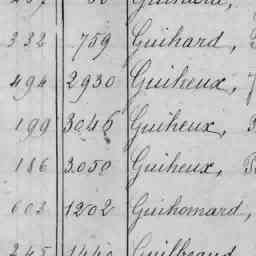 332 759 Guihard,
494 2930 Guiheux,
199 3045 Guiheux,
186 3050 Guiheux,
603 1202 Guihomard,
245 1440